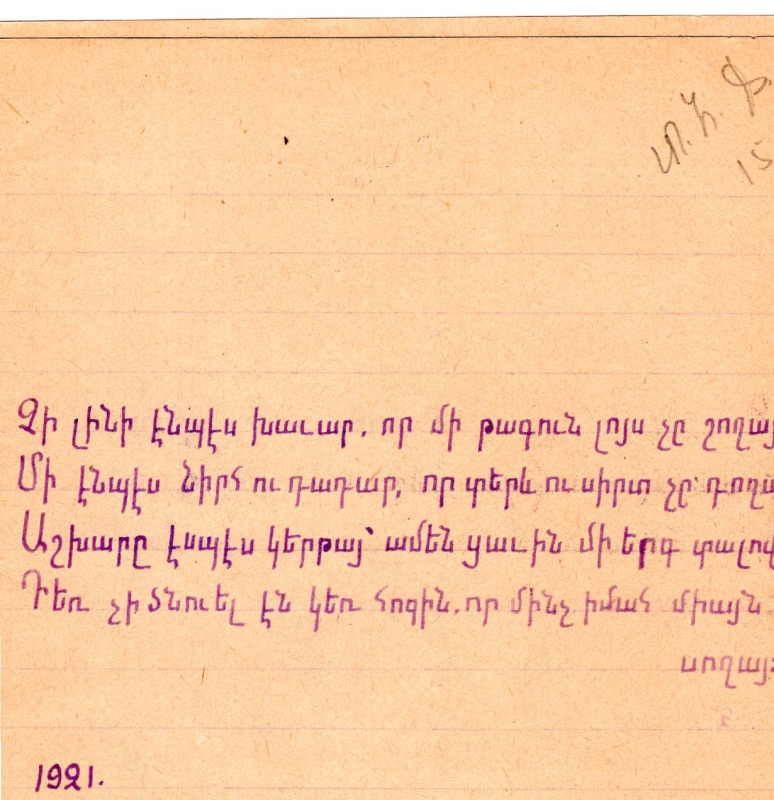 15
Չի լինի էնպէս խաւար, որ մի թագուն լոյս չը շողայ
Մի էնպէս նիրհ ու դադար, որ տերև ու սիրտ չը դողա
Աշխարը էսպէս կերթայ՝ ամեն ցաւին մի երգ տալով
Դեռ չի ծնուել էն կեռ հոգին, որ մինչ իմահ միայն
սողայ:
1921.